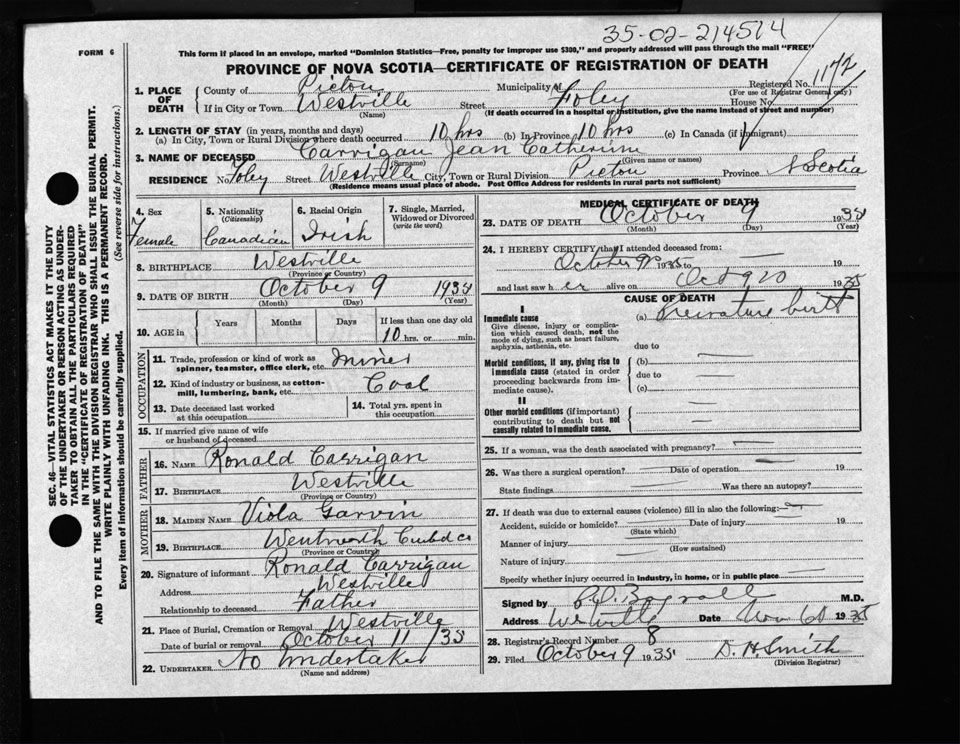 35-02-214514
FORM 6
This form if placed in an envelope, marked "Dominion Statistics—Free, penalty for improper use $300," and properly addressed will pass through the mail "FREE"
PROVINCE OF NOVA SCOTIA—CERTIFICATE OF REGISTRATION OF DEATH
Registered No. 1172
(For use of Registrar General only)
1. PLACE OF DEATH
County of Pictou Municipality of
If in City or Town Westville Street Foley House No.
(Name) (If death occurred in a hospital or institution, give the name instead of street and number)
2. LENGTH OF STAY (in years, months and days)
(a) In City, Town or Rural Division where death occurred 10 hrs (b) In Province 10 hrs (c) In Canada (if immigrant)
3. NAME OF DECEASED Carrigan Jean Catherine
(Surname) (Given name or names)
RESIDENCE No. Foley Street Westville City, Town or Rural Division Pictou Province N Scotia
(Residence means usual place of abode. Post Office Address for residents in rural parts not sufficient)
4. Sex Female
5. Nationality (Citizenship) Canadian
6. Racial Origin Irish
7. Single, Married, Widowed or Divorced (write the word)
8. BIRTHPLACE Westville
(Province or Country)
9. DATE OF BIRTH October 9 1935
(Month) (Day) (Year)
10. AGE in Years Months Days If less than one day old
10 hrs. or min.
OCCUPATION
11. Trade, profession or kind of work as spinner, teamster, office clerk, etc. Miner
12. Kind of industry or business, as cotton-mill, lumbering, bank, etc. Coal
13. Date deceased last worked at this occupation
14. Total yrs. spent in this occupation
15. If married give name of wife or husband of deceased
FATHER
16. NAME Ronald Carrigan
17. BIRTHPLACE Westville
(Province or Country)
MOTHER
18. MAIDEN NAME Viola Garvin
19. BIRTHPLACE Wentworth Cumb'd Co
(Province or Country)
20. Signature of informant Ronald Carrigan
Address Westville
Relationship to deceased Father
21. Place of Burial, Cremation or Removal Westville
Date of burial or removal October 11 1935
22. UNDERTAKER No Undertaker
(Name and address)
MEDICAL CERTIFICATE OF DEATH
23. DATE OF DEATH October 9 1935
(Month) (Day) (Year)
24. I HEREBY CERTIFY that I attended deceased from:
October 9 1935 19
and last saw her alive on Oct 9 1935
CAUSE OF DEATH
I
Immediate cause (a) Premature birth
Give disease, injury or complication which caused death, not the mode of dying, such as heart failure, asphyxia, asthenia, etc.
due to
Morbid conditions, if any, giving rise to immediate cause (stated in order proceeding backwards from immediate cause).
(b)
due to
(c)
II
Other morbid conditions (if important) contributing to death but not causally related to immediate cause.
25. If a woman, was the death associated with pregnancy?
26. Was there a surgical operation? Date of operation 19
State findings Was there an autopsy?
27. If death was due to external causes (violence) fill in also the following:
Accident, suicide or homicide? Date of injury 19
(State which)
Manner of injury
(How sustained)
Nature of injury
Specify whether injury occurred in industry, in home, or in public place
Signed by M.D.
Address Westville Date Nov 6 1935
28. Registrar's Record Number 8
29. Filed October 9 1935 D. H Smith
(Division Registrar)
SEC. 46—VITAL STATISTICS ACT MAKES IT THE DUTY
OF THE UNDERTAKER OR PERSON ACTING AS UNDER-
TAKER TO OBTAIN ALL THE PARTICULARS REQUIRED
IN THE "CERTIFICATE OF REGISTRATION OF DEATH"
AND TO FILE THE SAME WITH THE DIVISION REGISTRAR WHO SHALL ISSUE THE BURIAL PERMIT.
WRITE PLAINLY WITH UNFADING INK. THIS IS A PERMANENT RECORD.
Every item of information should be carefully supplied. (See reverse side for instructions.)